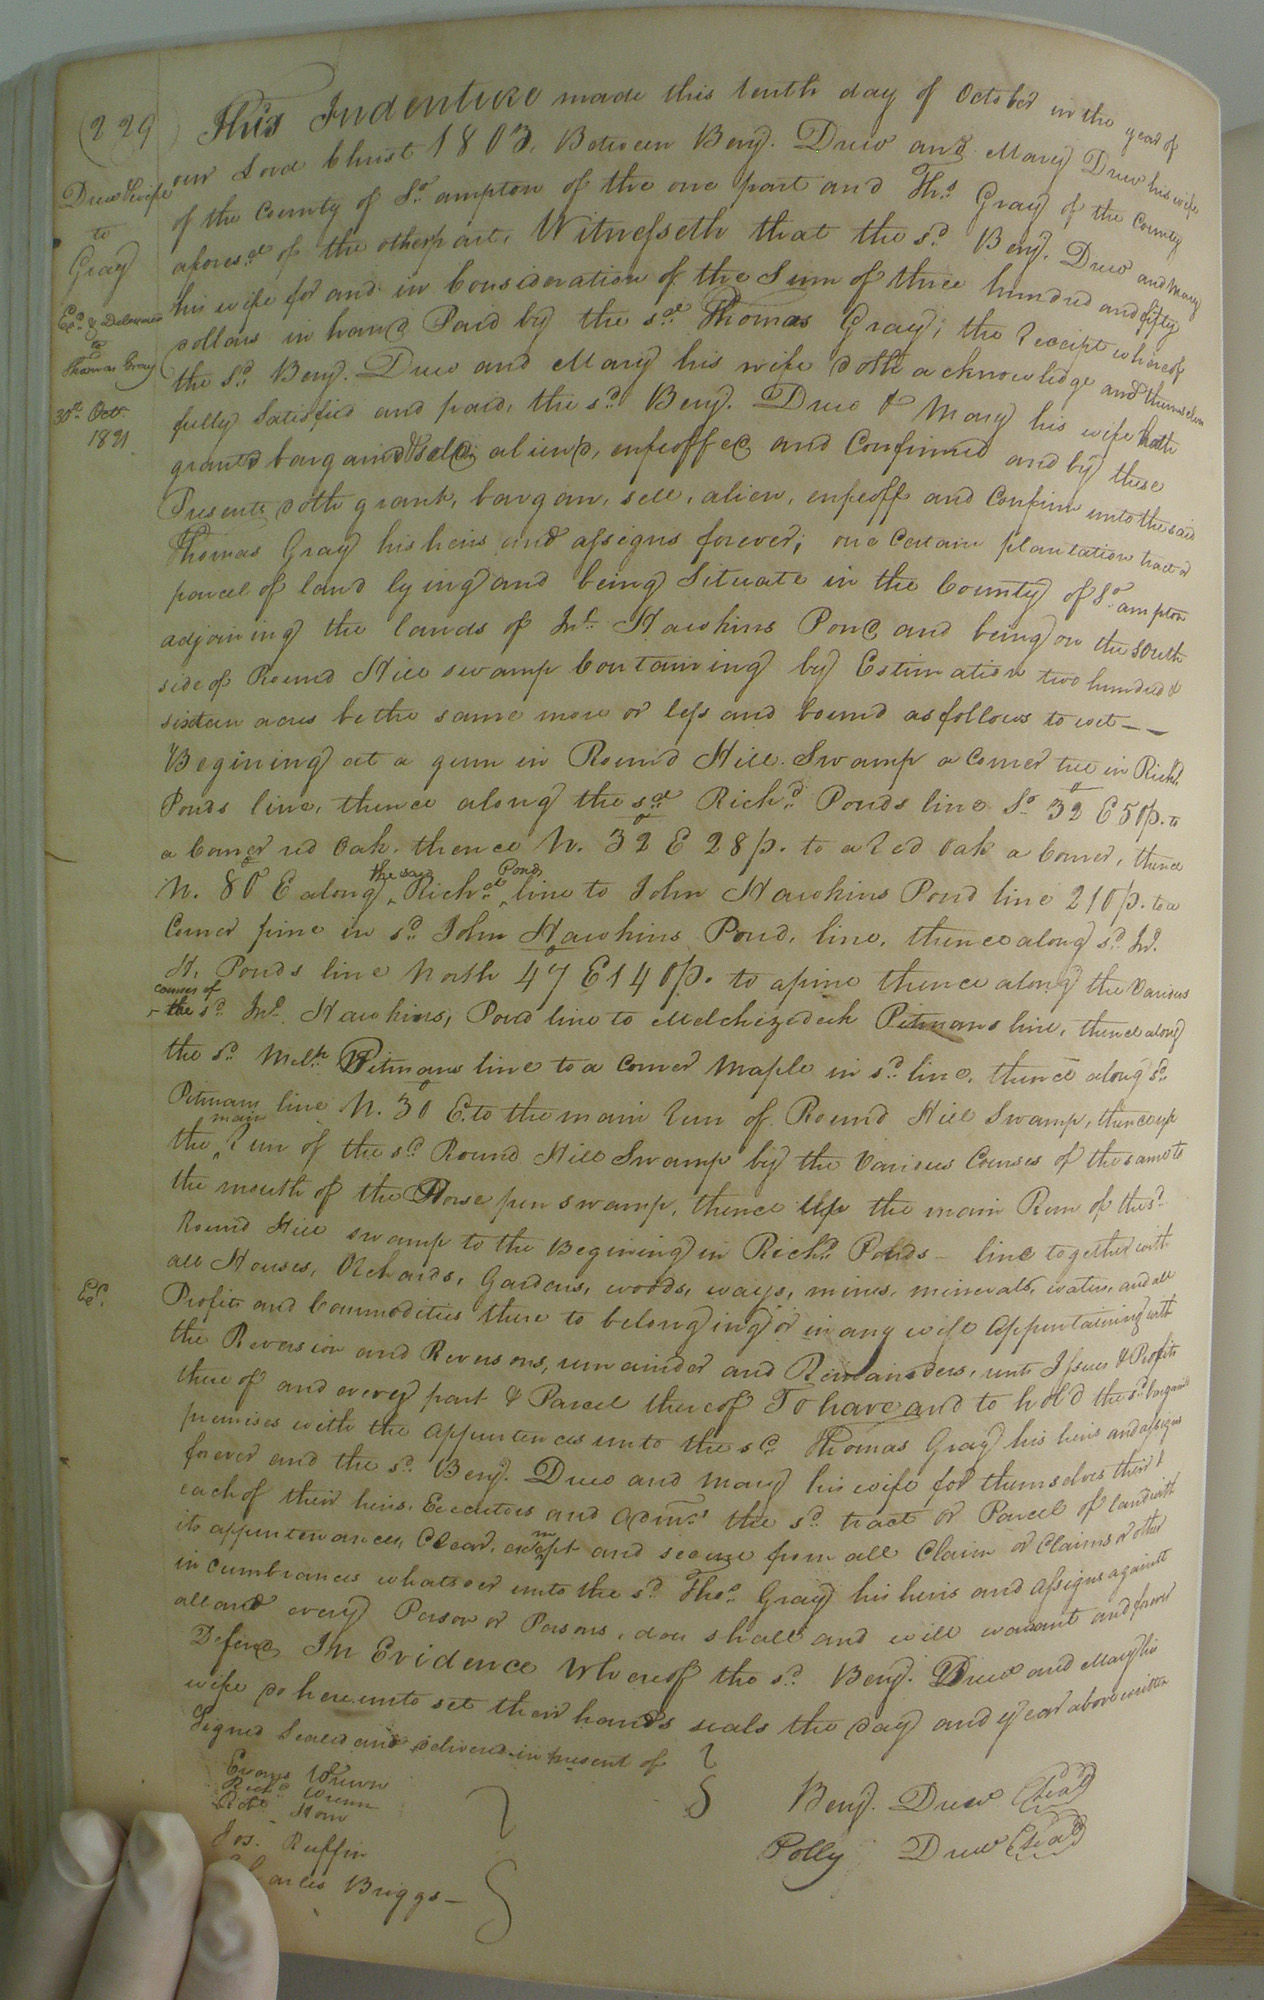 (229)
Drew & wife
to
Gray
Exd & Delivered
to
Thomas Gray
30th Octr.
1821
This Indenture made this tenth day of October in the year of
our Lord Christ 1803. Between Benj. Drew and Mary Drew his wife
of the County of So. ampton of the one part and Ths. Gray of the County
aforesd. of the other part, Witnesseth that the sd. Benj. Drew and Mary
his wife for and in Consideration of the Sum of three hundred and fifty
dollars in hand Paid by the sd. Thomas Gray; the Receipt whereof
the sd. Benj. Drew and Mary his wife doth acknowledge and themselves
fully Satisfied and paid, the sd. Benj. Drew & Mary his wife hath
granted bargained & sold, aliend, enfeoffed and Confirmed and by these
Presents doth grant, bargan, sell, alien, enfeoff and Confirm unto the said
Thomas Gray his heirs and assigns forever; one Certain plantation tract or
parcel of land lying and being Situate in the County of So. ampton
adjoining the lands of Jno. Hawkins Pond and being on the south
side of Round Hill swamp Containing by Estimation two hundred &
sixteen acres be the same more or less and bound as follows to wit --
Begining at a gum in Round Hill Swamp a Corner tree in Richd.
Ponds line, thence along the sd. Richd. Ponds line So. 32° E 50 p. to
a Corner red Oak, thence N. 32° E 28 p. to a Red Oak a Corner, thence
N. 80° E along the said Richd. Ponds line to John Hawkins Pond line 210 p. to a
Corner pine in sd. John Hawkins Pond, line, thence along sd. Jno.
H. Ponds line North 47° E 140 p. to a pine thence along the Various
courses of the sd. Jno. Hawkins, Pond line to Melchizedeck Pitmans line, thence along
the sd. Melk. Pitmans line to a Corner Maple in sd. line, thence along sd.
Pitmans line N. 30° E. to the main Run of Round Hill Swamp, thence up
the main Run of the sd. Round Hill Swamp by the Various Courses of the same to
the mouth of the Horse pen swamp, thence Up the main Run of the sd.
Round Hill swamp to the Begining in Richd. Ponds - line together with
all Houses, Orchards, Gardens, woods, ways, mines, minerals, water, and all
Exd.
Profits and Commodities there to belonging or in any wise appertaining with
the Reversion and Reversons, remainder and Remainders, rents Issues & Profits
there of and every part & Parcel thereof To have and to hold the sd. bargained
premises with the appurtences unto the sd. Thomas Gray his heirs and assigns
forever and the sd. Benj. Drew and Mary his wife for themselves their &
each of their heirs, Executors and Admrs. the sd. tract or Parcel of land with
its appurtenances, Clear, exempt and secure from all Claim or Claims or other
incumbrances whatsoer unto the sd. Thos. Gray his heirs and assigns against
all and every Person or Persons, doe shall and will warrant and forever
Defend In Evidence Whereof the sd. Benj. Drew and Mary his
wife do hereunto set their hands seals the day and year above written
Signed Sealed and delivered in present of
Evans Wrenn
Richd. Wrenn
Jos. Ruffin
Charles Briggs -
Benj. Drew (Seal)
Polly Drew (Seal)